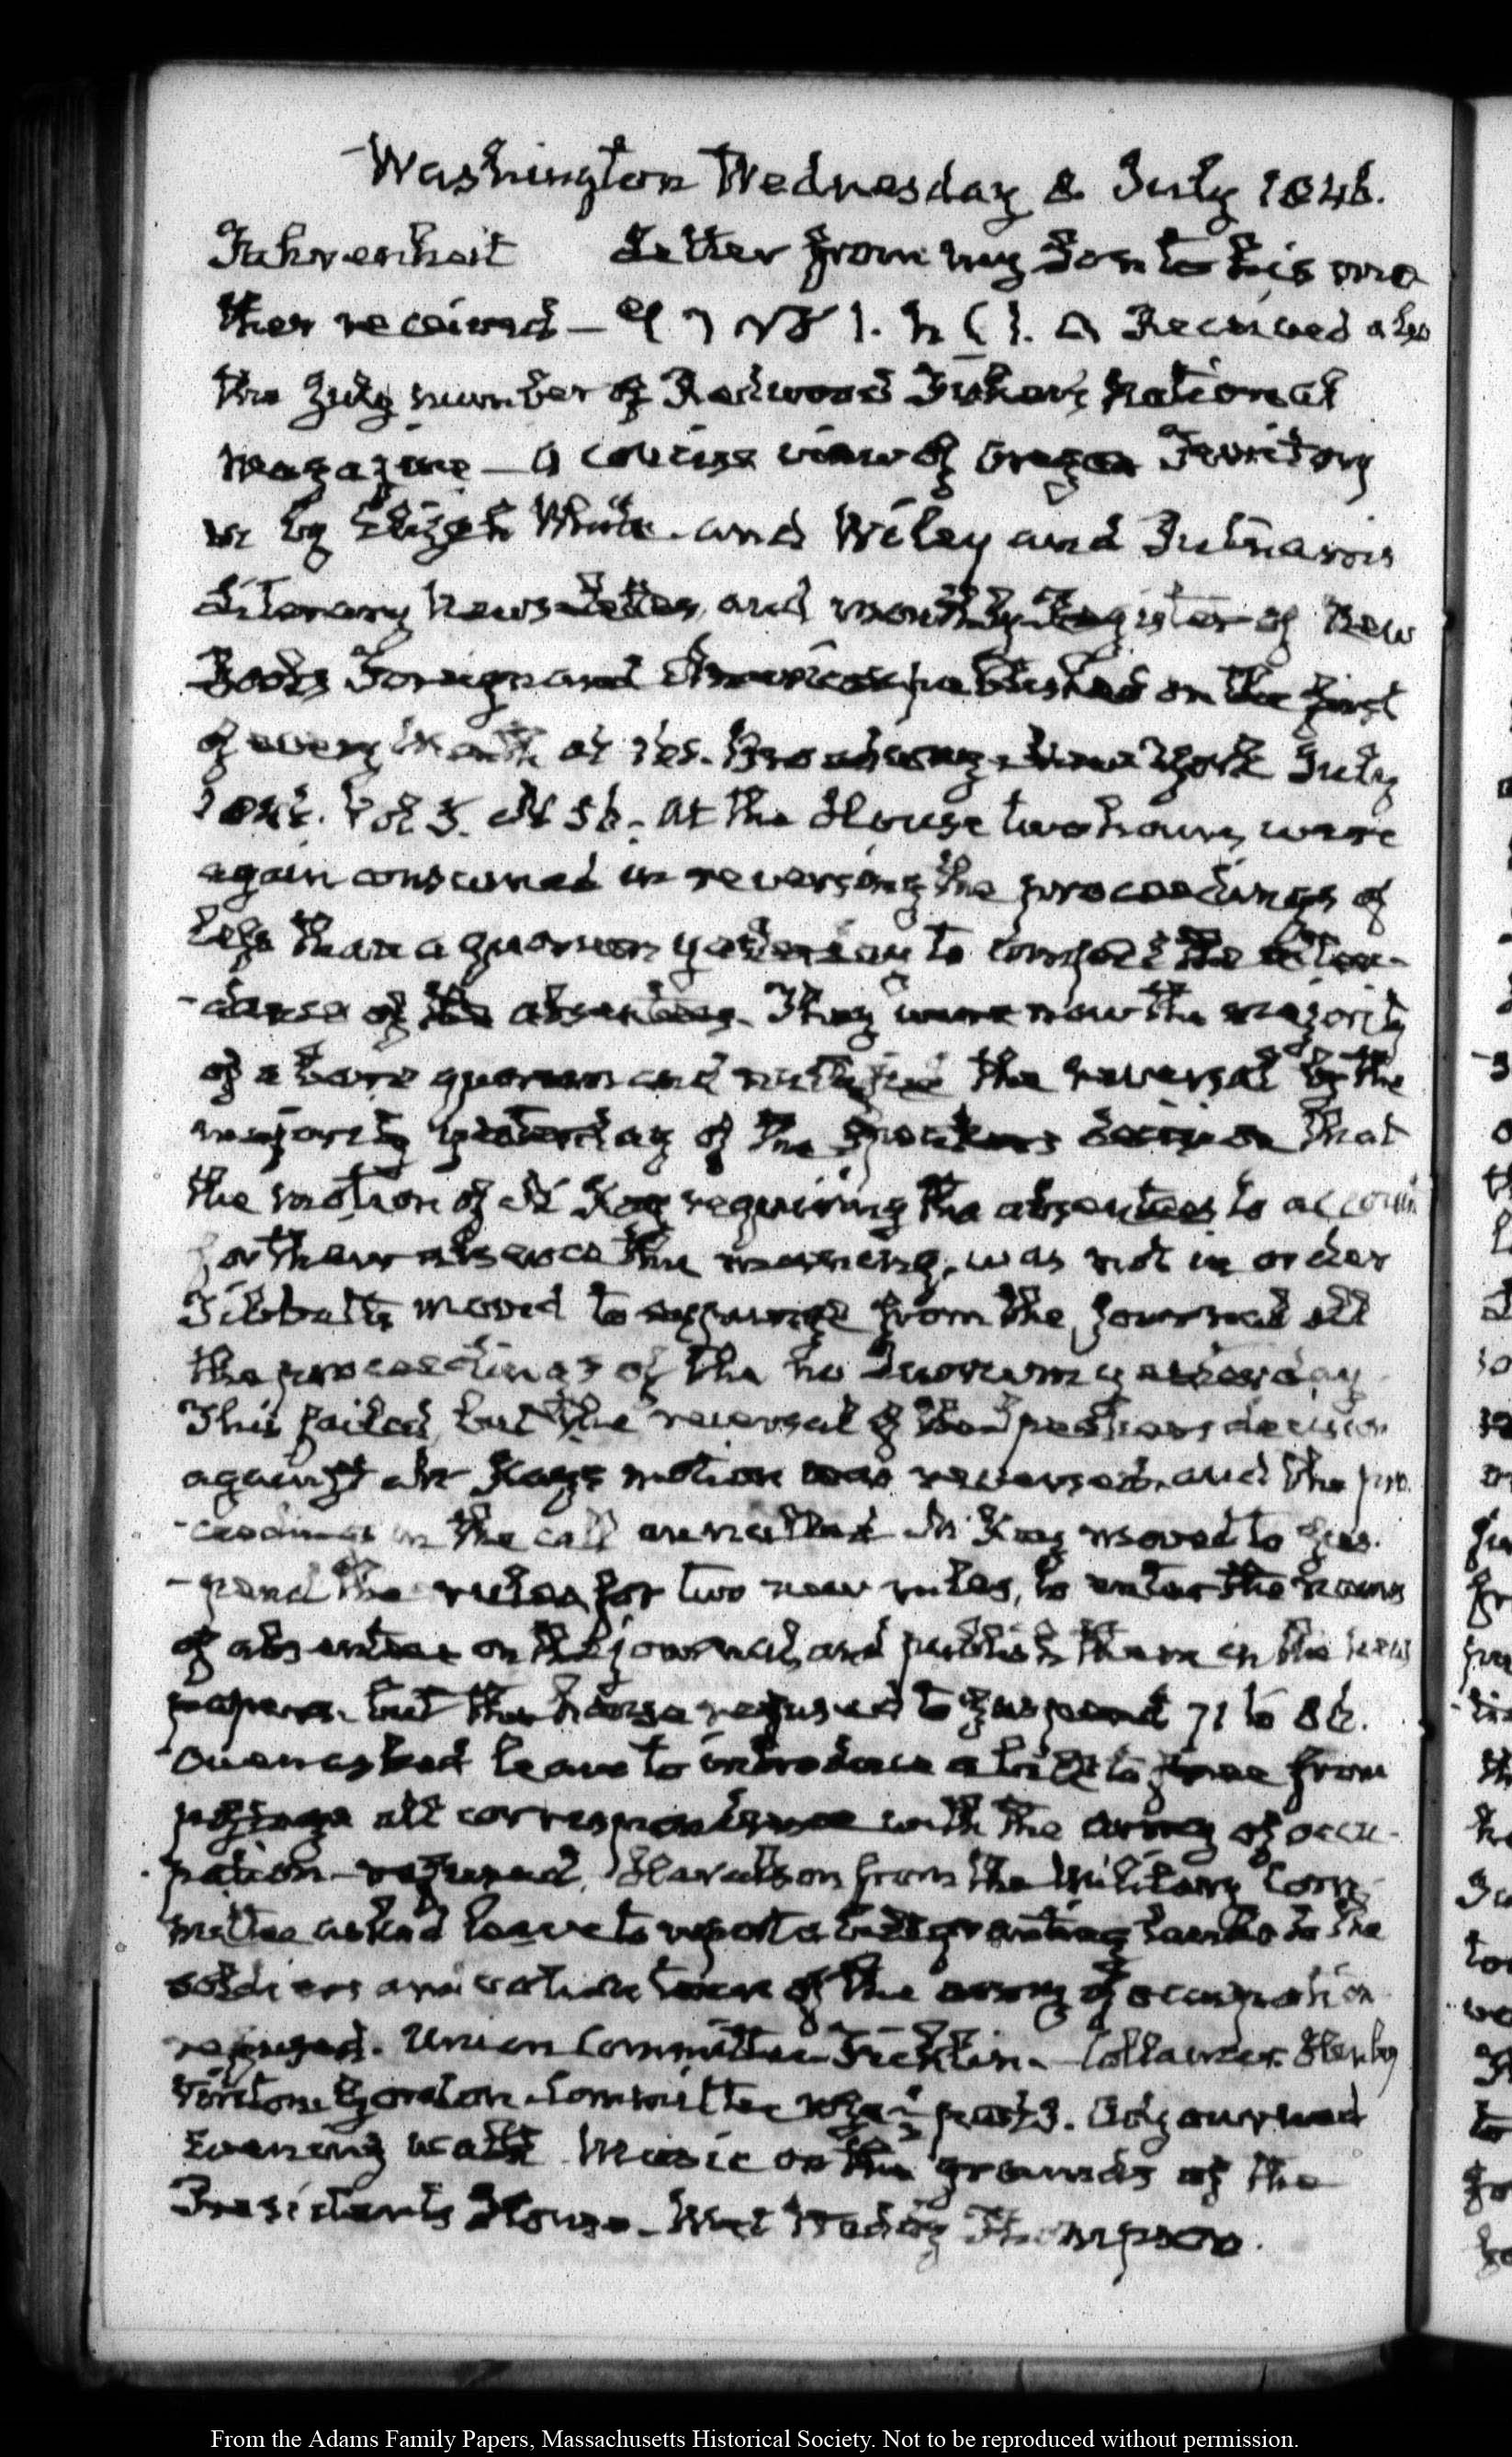 Washington Wednesday 8. July 1846.
Fahrenheit Letter from my Son to his mo
ther received — Received also
the July number of Redwood Fisher's National
Magazine — A concise view of Oregon Territory
by Elijah White. and Wiley and Putnam's
Literary News-Letter, and monthly Register of New
Books Foreign and American published on the first
of every Month at Broadway, New York July
1846. Vol 5. N 56. At the House two hours were
again consumed in reversing the proceedings of
less than a quorum yesterday to compel the atten-
-dance of the absentees. They were now the majority
of a bare quorum and the reversal by the
majority yesterday of the Speakers decision that
the motion of Mr Kay requiring the absentees to account
for their absence this morning, was not in order
Tibbatts moved to expunge from the journal all
the proceedings of the no Quorum yesterday
This failed, but the reversal of the Speakers decision
against Mr Kays motion was reversed, and the pro
-ceedings in the call Mr Kay moved to sus-
-pend the rules, for two new rules, to enter the names
of absentees on the journal, and publish them in the news
papers. but the house refused to suspend 71 to 86.
Owen asked leave to introduce a bill to free from
postage all correspondence with the army of occu-
pation — refused. Haralson from the Military Com-
mittee asked leave to report a bill granting lands to the
soldiers and volunteers of the army of occupation
refused. Union Committee Ficklin. Collamer.
Gordon. Committee past 3. Adjourned
Evening walk Music on the grounds of the
Presidents House. Met Waddy Thompson.